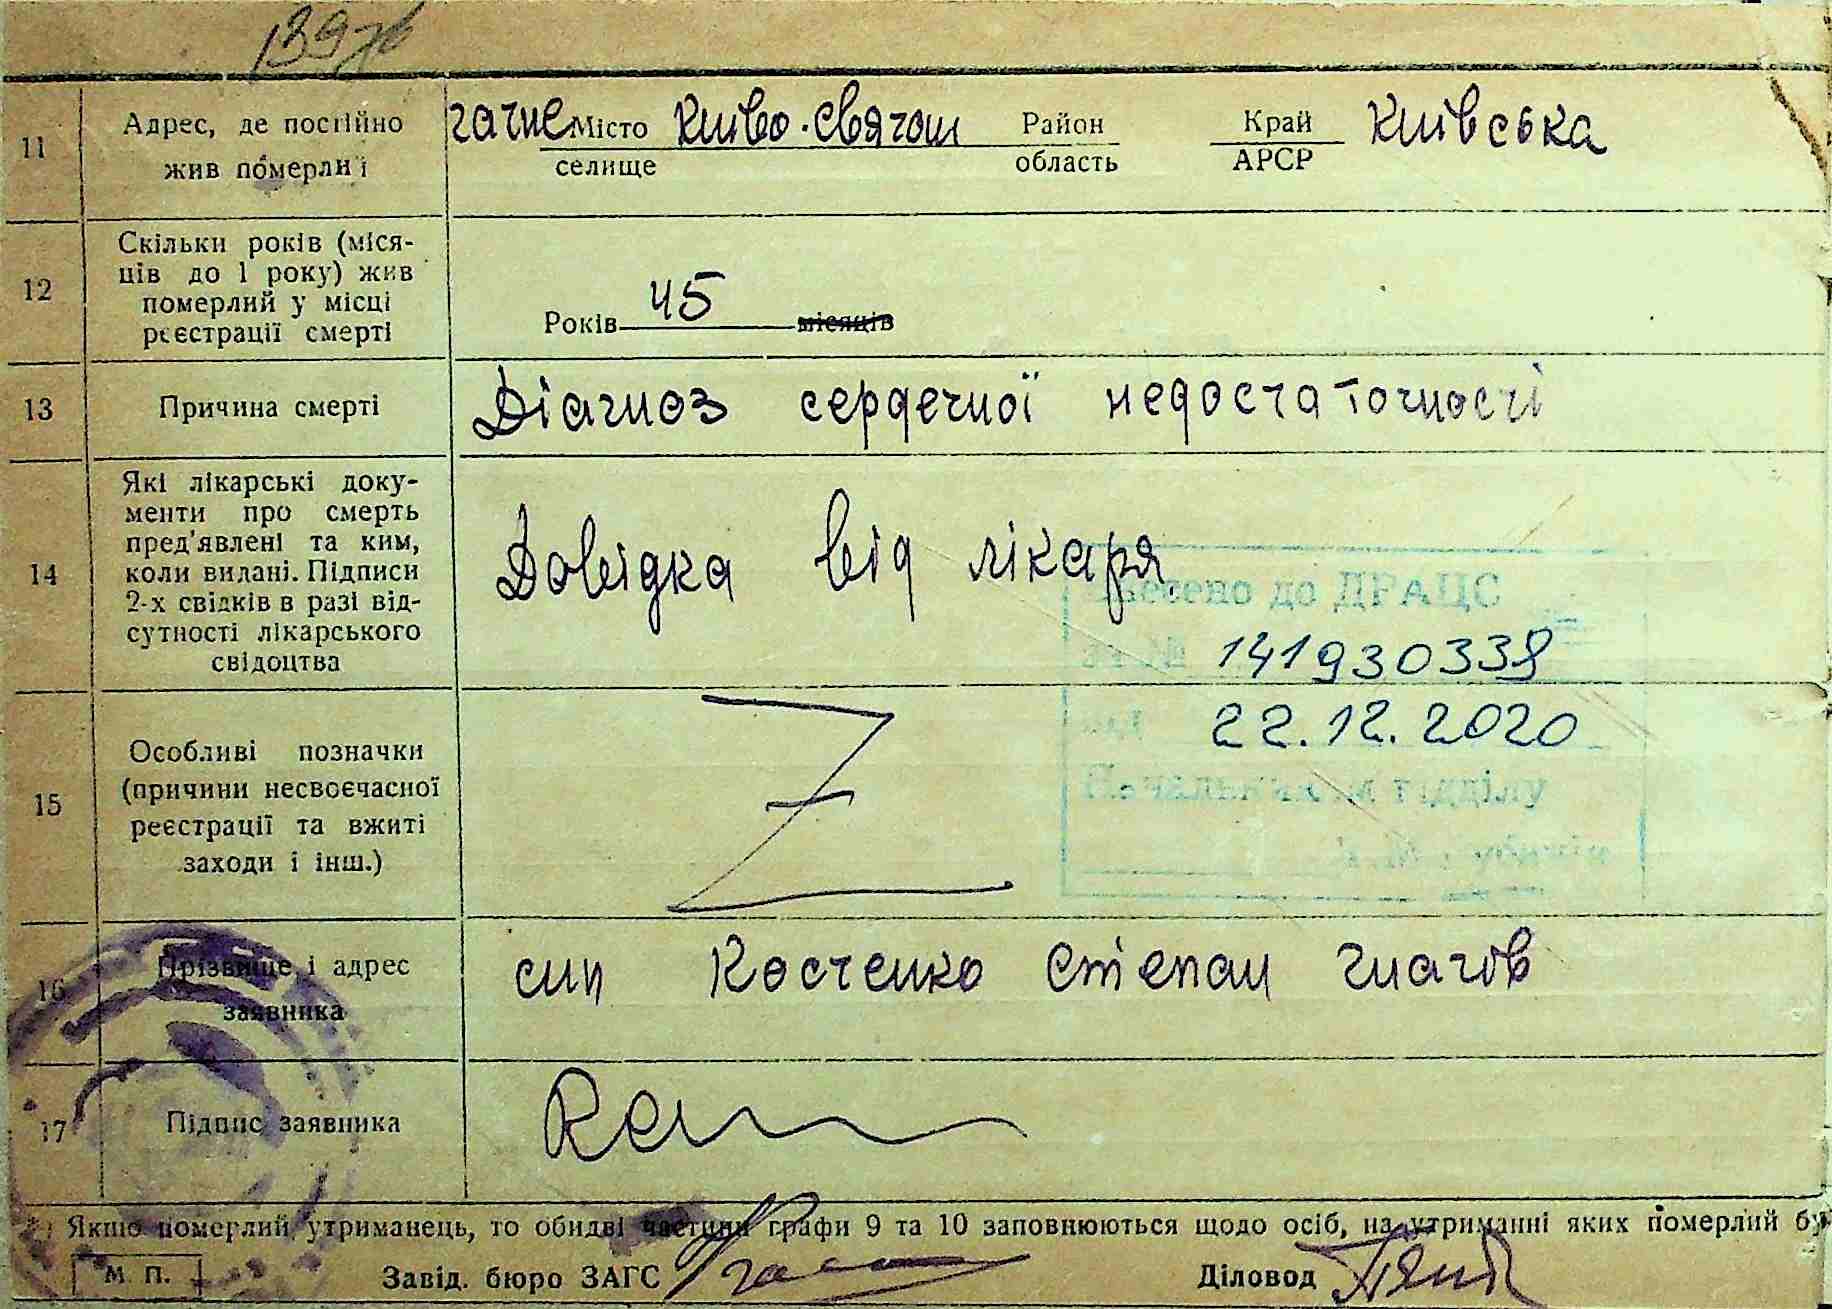 11
Адрес, де постійно
жив померлий
гатне Місто Києво-Святош Район Край Київська
селище область АРСР
12
Скільки років (міся-
ців до 1 року) жив
померлий у місці
реєстрації смерті
Років 45 місяців
13
Причина смерті
Діагноз сердечної недостаточності
14
Які лікарські доку-
менти про смерть
пред'явлені та ким,
коли видані. Підписи
2-х свідків в разі від-
сутності лікарського
свідоцтва
Довідка від лікаря
Внесено до ДРАЦС
за № 141930338
від 22.12.2020
15
Особливі позначки
(причини несвоєчасної
реєстрації та вжиті
заходи і інш.)
Z
Начальник відділу
16
Прізвище і адрес
заявника
син Костенко Степан
17
Підпис заявника
*) Якщо померлий утриманець, то обидві частини графи 9 та 10 заповнюються щодо осіб, на утриманні яких померлий бу
М. П.
Завід. бюро ЗАГС
Діловод